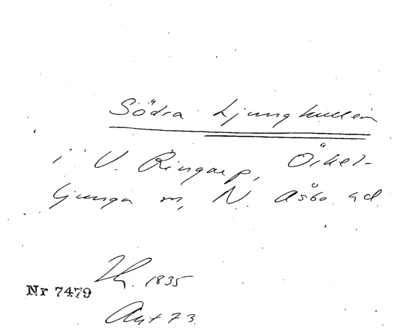 Södra Ljungkullen
i V. Ringarp, Örkel-
ljunga sn, N. Åsbo hd
1835
Nr 7479
Avt 73.